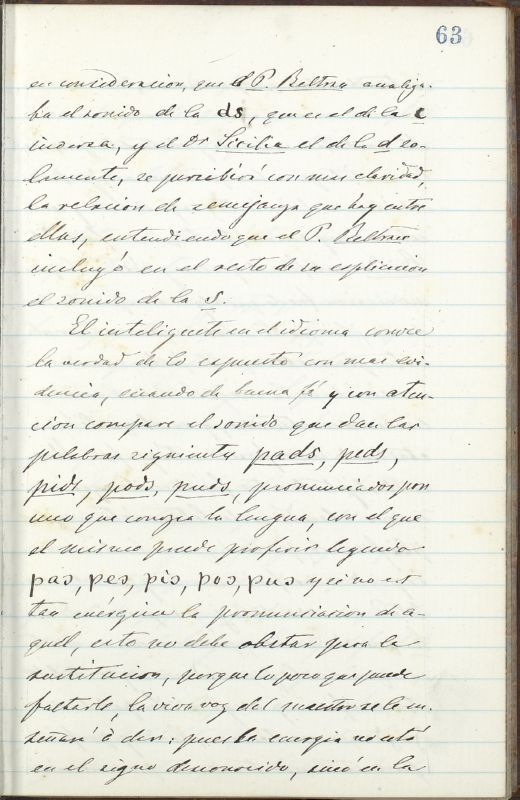 63
en consideracion, que el P. Beltran analiza-
ba el sonido de la ds, que es el de la ɔ
inversa, y el Dr Sicilia el de la d so-
lamente, se percibirá con mas claridad,
la relacion de semejanza que hay entre
ellas, entendiendo que el P. Beltran
incluyó en el resto de su esplicacion
el sonido de la s.
El inteligente en el idioma conoce
la verdad de lo espuesto con mas evi-
dencia, cuando de buena fé y con aten-
cion compare el sonido que dan las
palabras siguientes pads, peds,
pids, pods, puds, pronunciadas por
uno que conozca la lengua, con el que
el mismo puede proferir leyendo
pao, peo, pio, poo, puo y si no es
tan enérgica la pronunciacion de a-
quel, esto no debe obstar para la
sustitucion, porque lo poco que puede
faltarle, la viva voz del maestro se le en-
señará á dar: pues la energia no está
en el signo desconocido, sinó en la